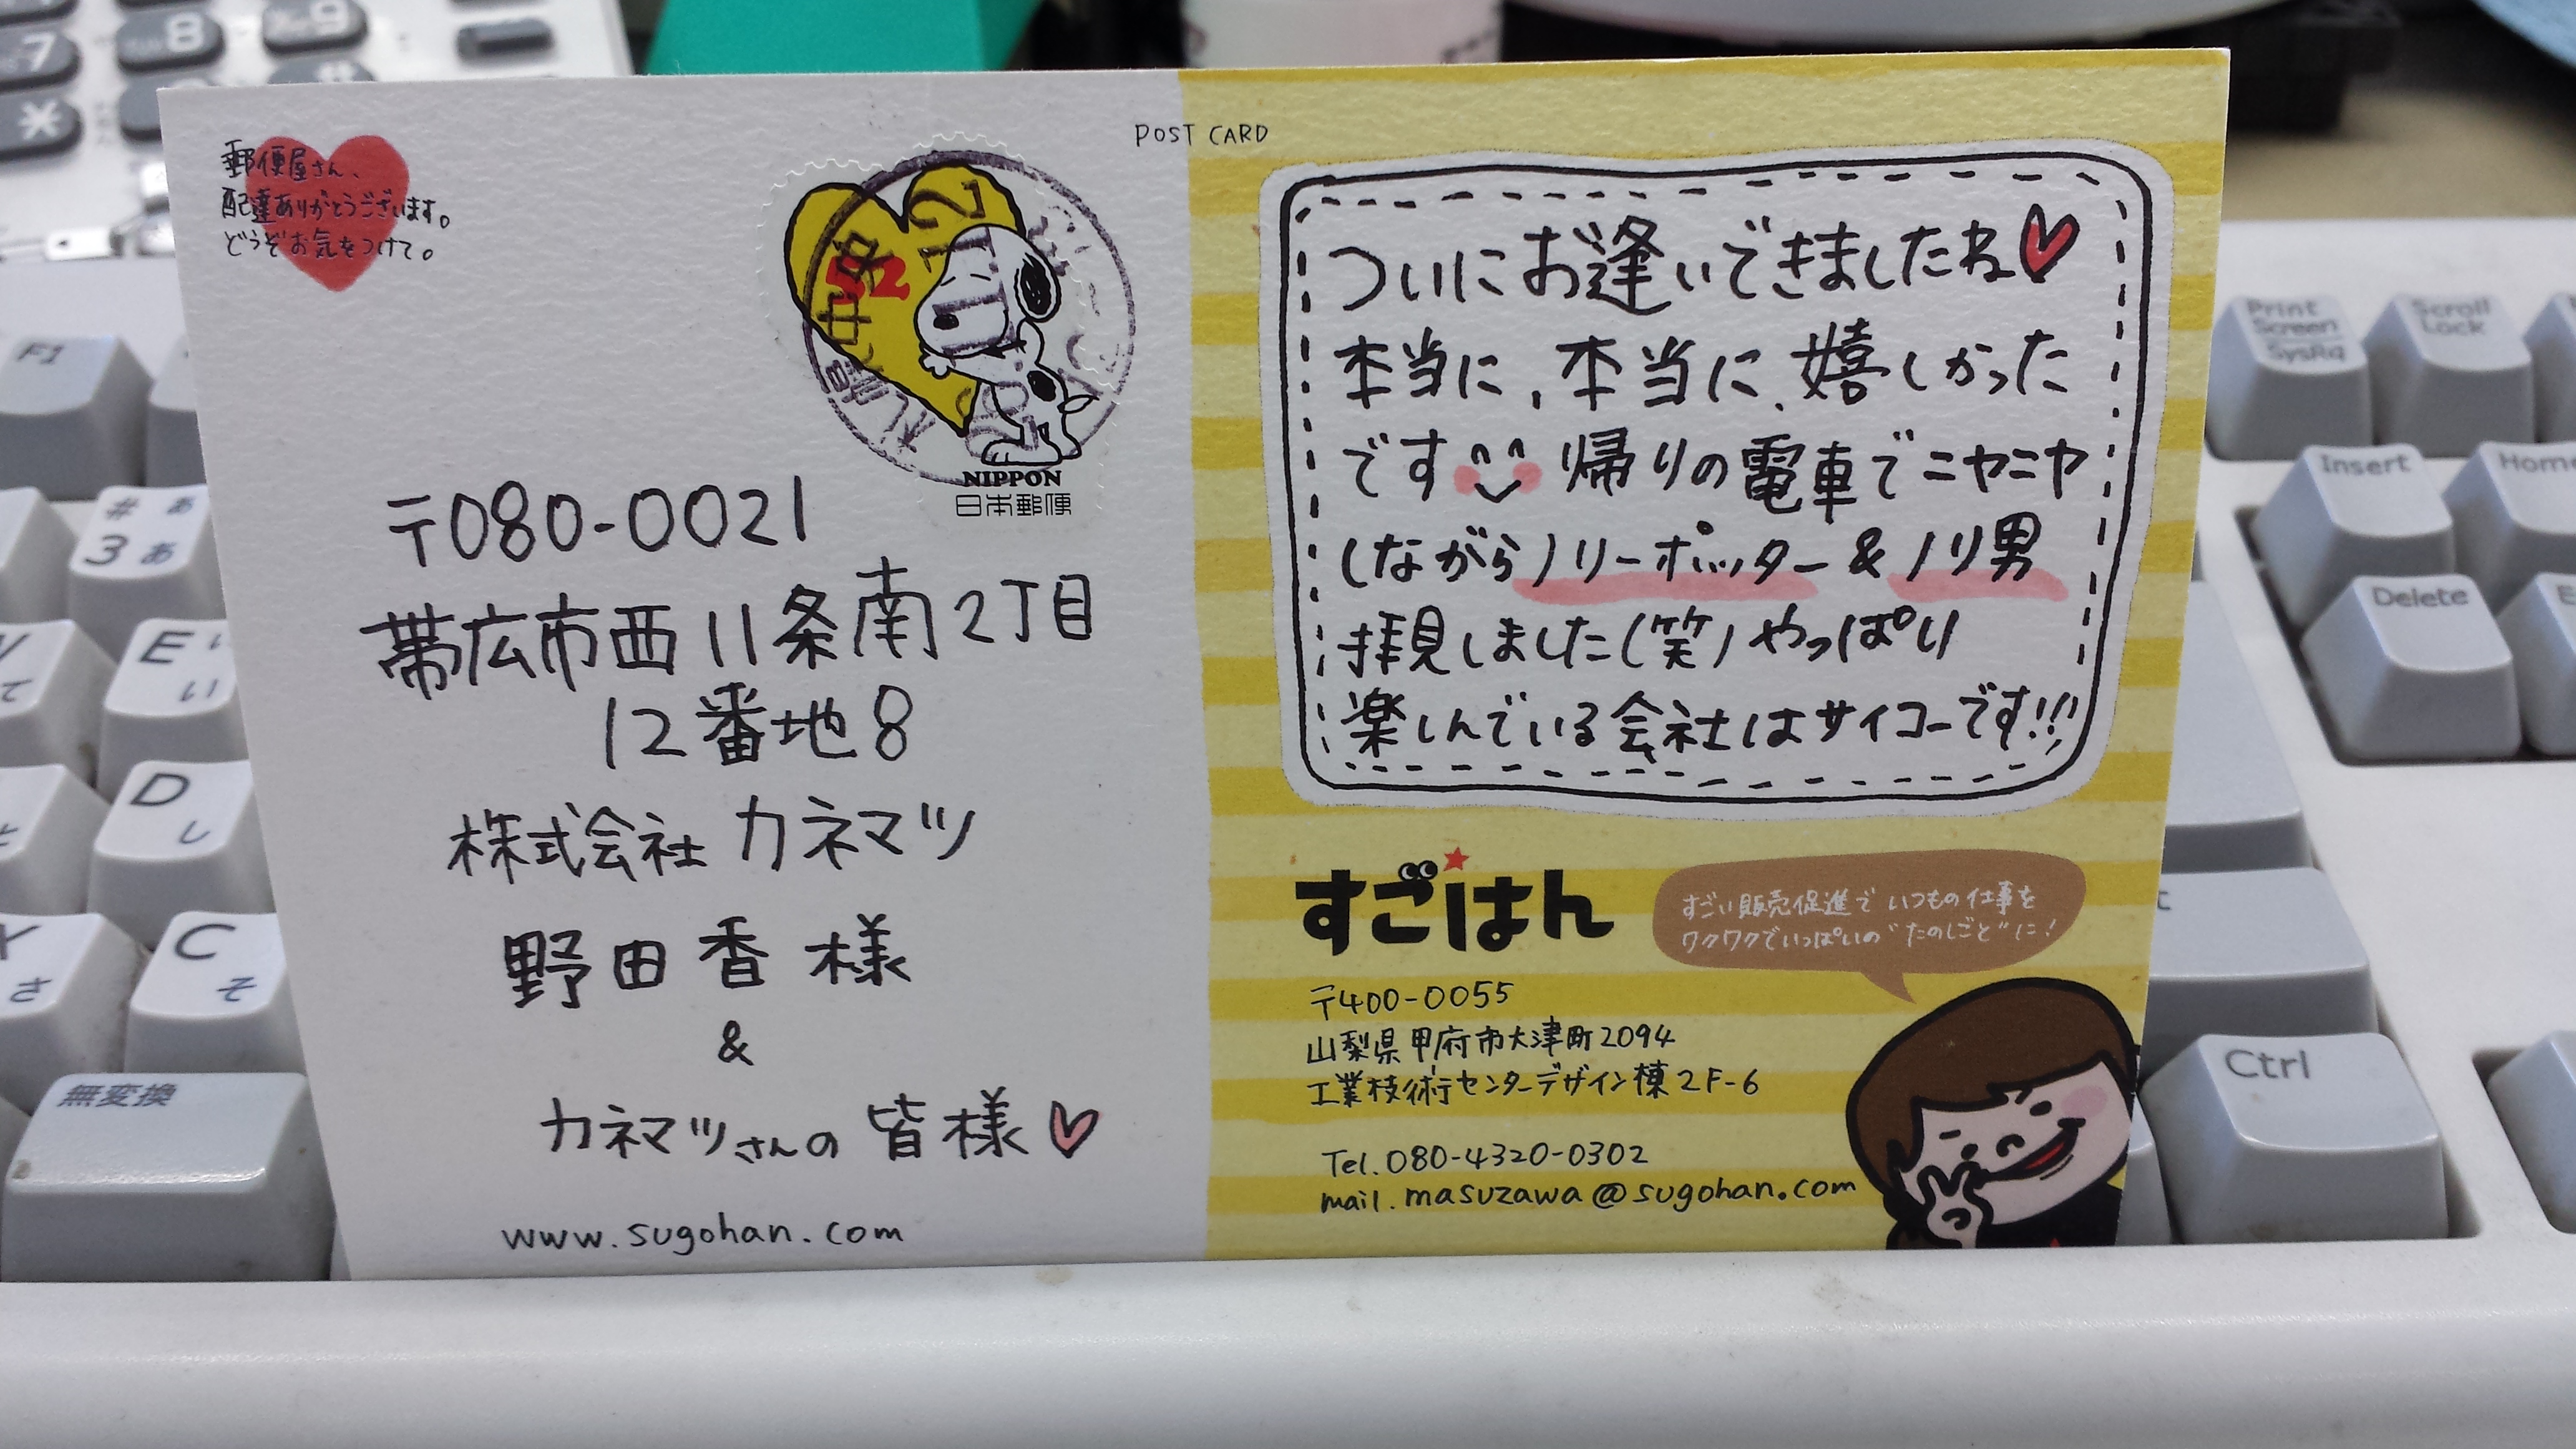 郵便屋さん、
配達ありがとうございます。
どうぞお気をつけて。
POST CARD
52
NIPPON
日本郵便
札幌中央
12
〒080-0021
帯広市西11条南2丁目
12番地8
株式会社 カネマツ
野田香様
&
カネマツさんの皆様
www.sugohan.com
ついにお逢いできましたね
本当に、本当に、嬉しかった
です 帰りの電車でニヤニヤ
しながらノリーポッター & ノリ男
拝見しました(笑) やっぱり
楽しんでいる会社はサイコーです!!
すごはん
すごい販売促進で いつもの仕事を
ワクワクでいっぱいの"たのしごと"に!
〒400-0055
山梨県甲府市大津町2094
工業技術センターデザイン棟2F-6
Tel.080-4320-0302
mail.masuzawa@sugohan.com
7
8
9
*
F1
# あ
3 ぁ
E い
ぃ
て
D
し
C
そ
Y
さ
無変換
Print
Screen
SysRq
Scroll
Lock
Insert
Home
Delete
Ctrl